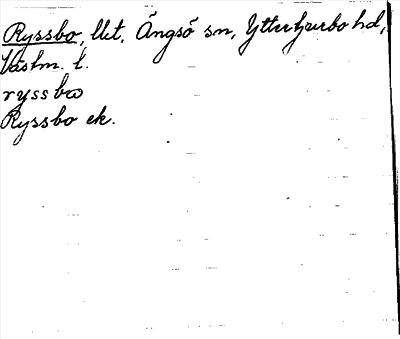 Ryssbo, lht, Ängsö sn, Yttertjurbo hd,
Västm. l.
ryssbω
Ryssbo ek.